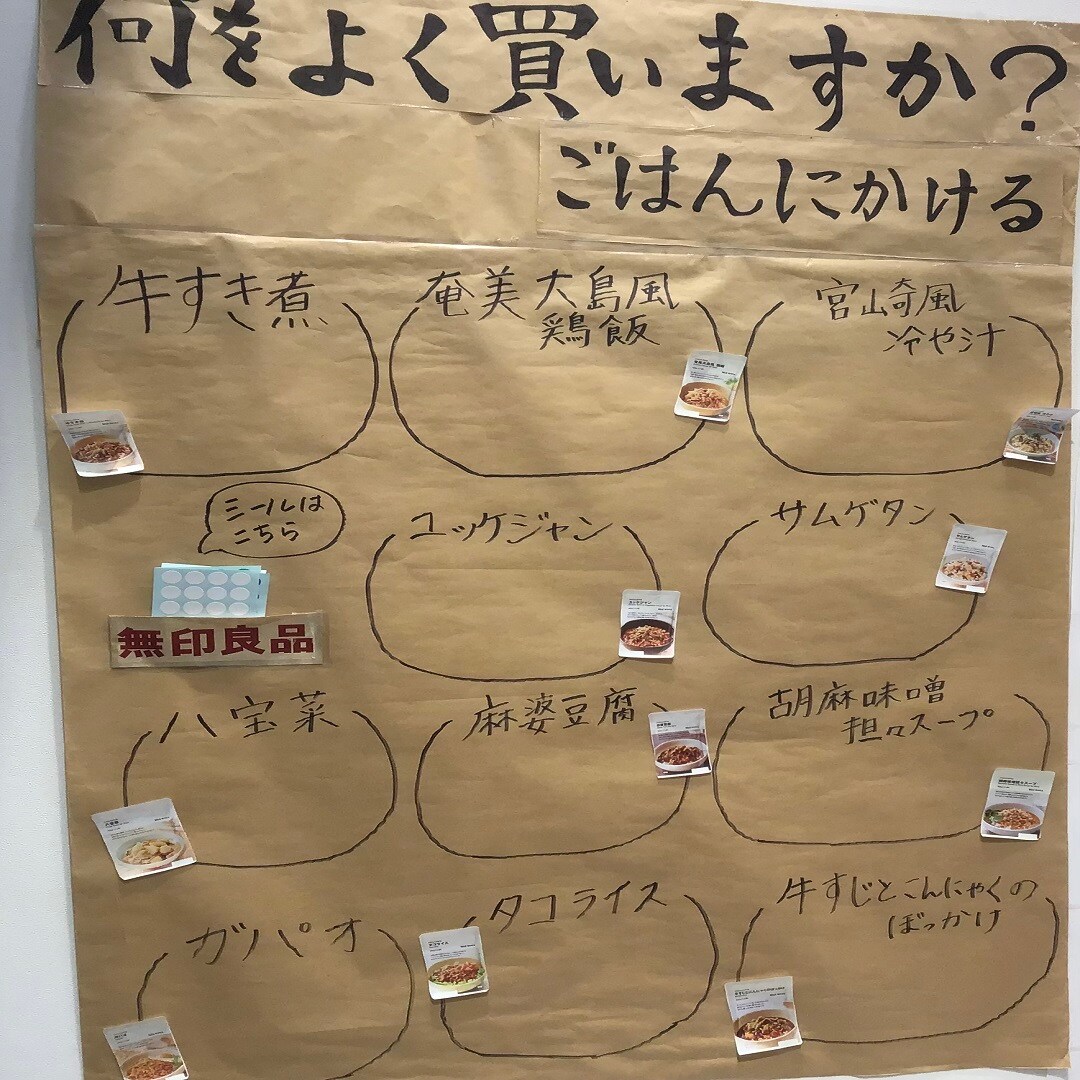 何をよく買いますか?
ごはんにかける
牛すき煮
奄美大島風
鶏飯
宮崎風
冷や汁
ミールは
こちら
無印良品
ユッケジャン
サムゲタン
八宝菜
麻婆豆腐
胡麻味噌
担々スープ
ガパオ
タコライス
牛すじとこんにゃくの
ぼっかけ